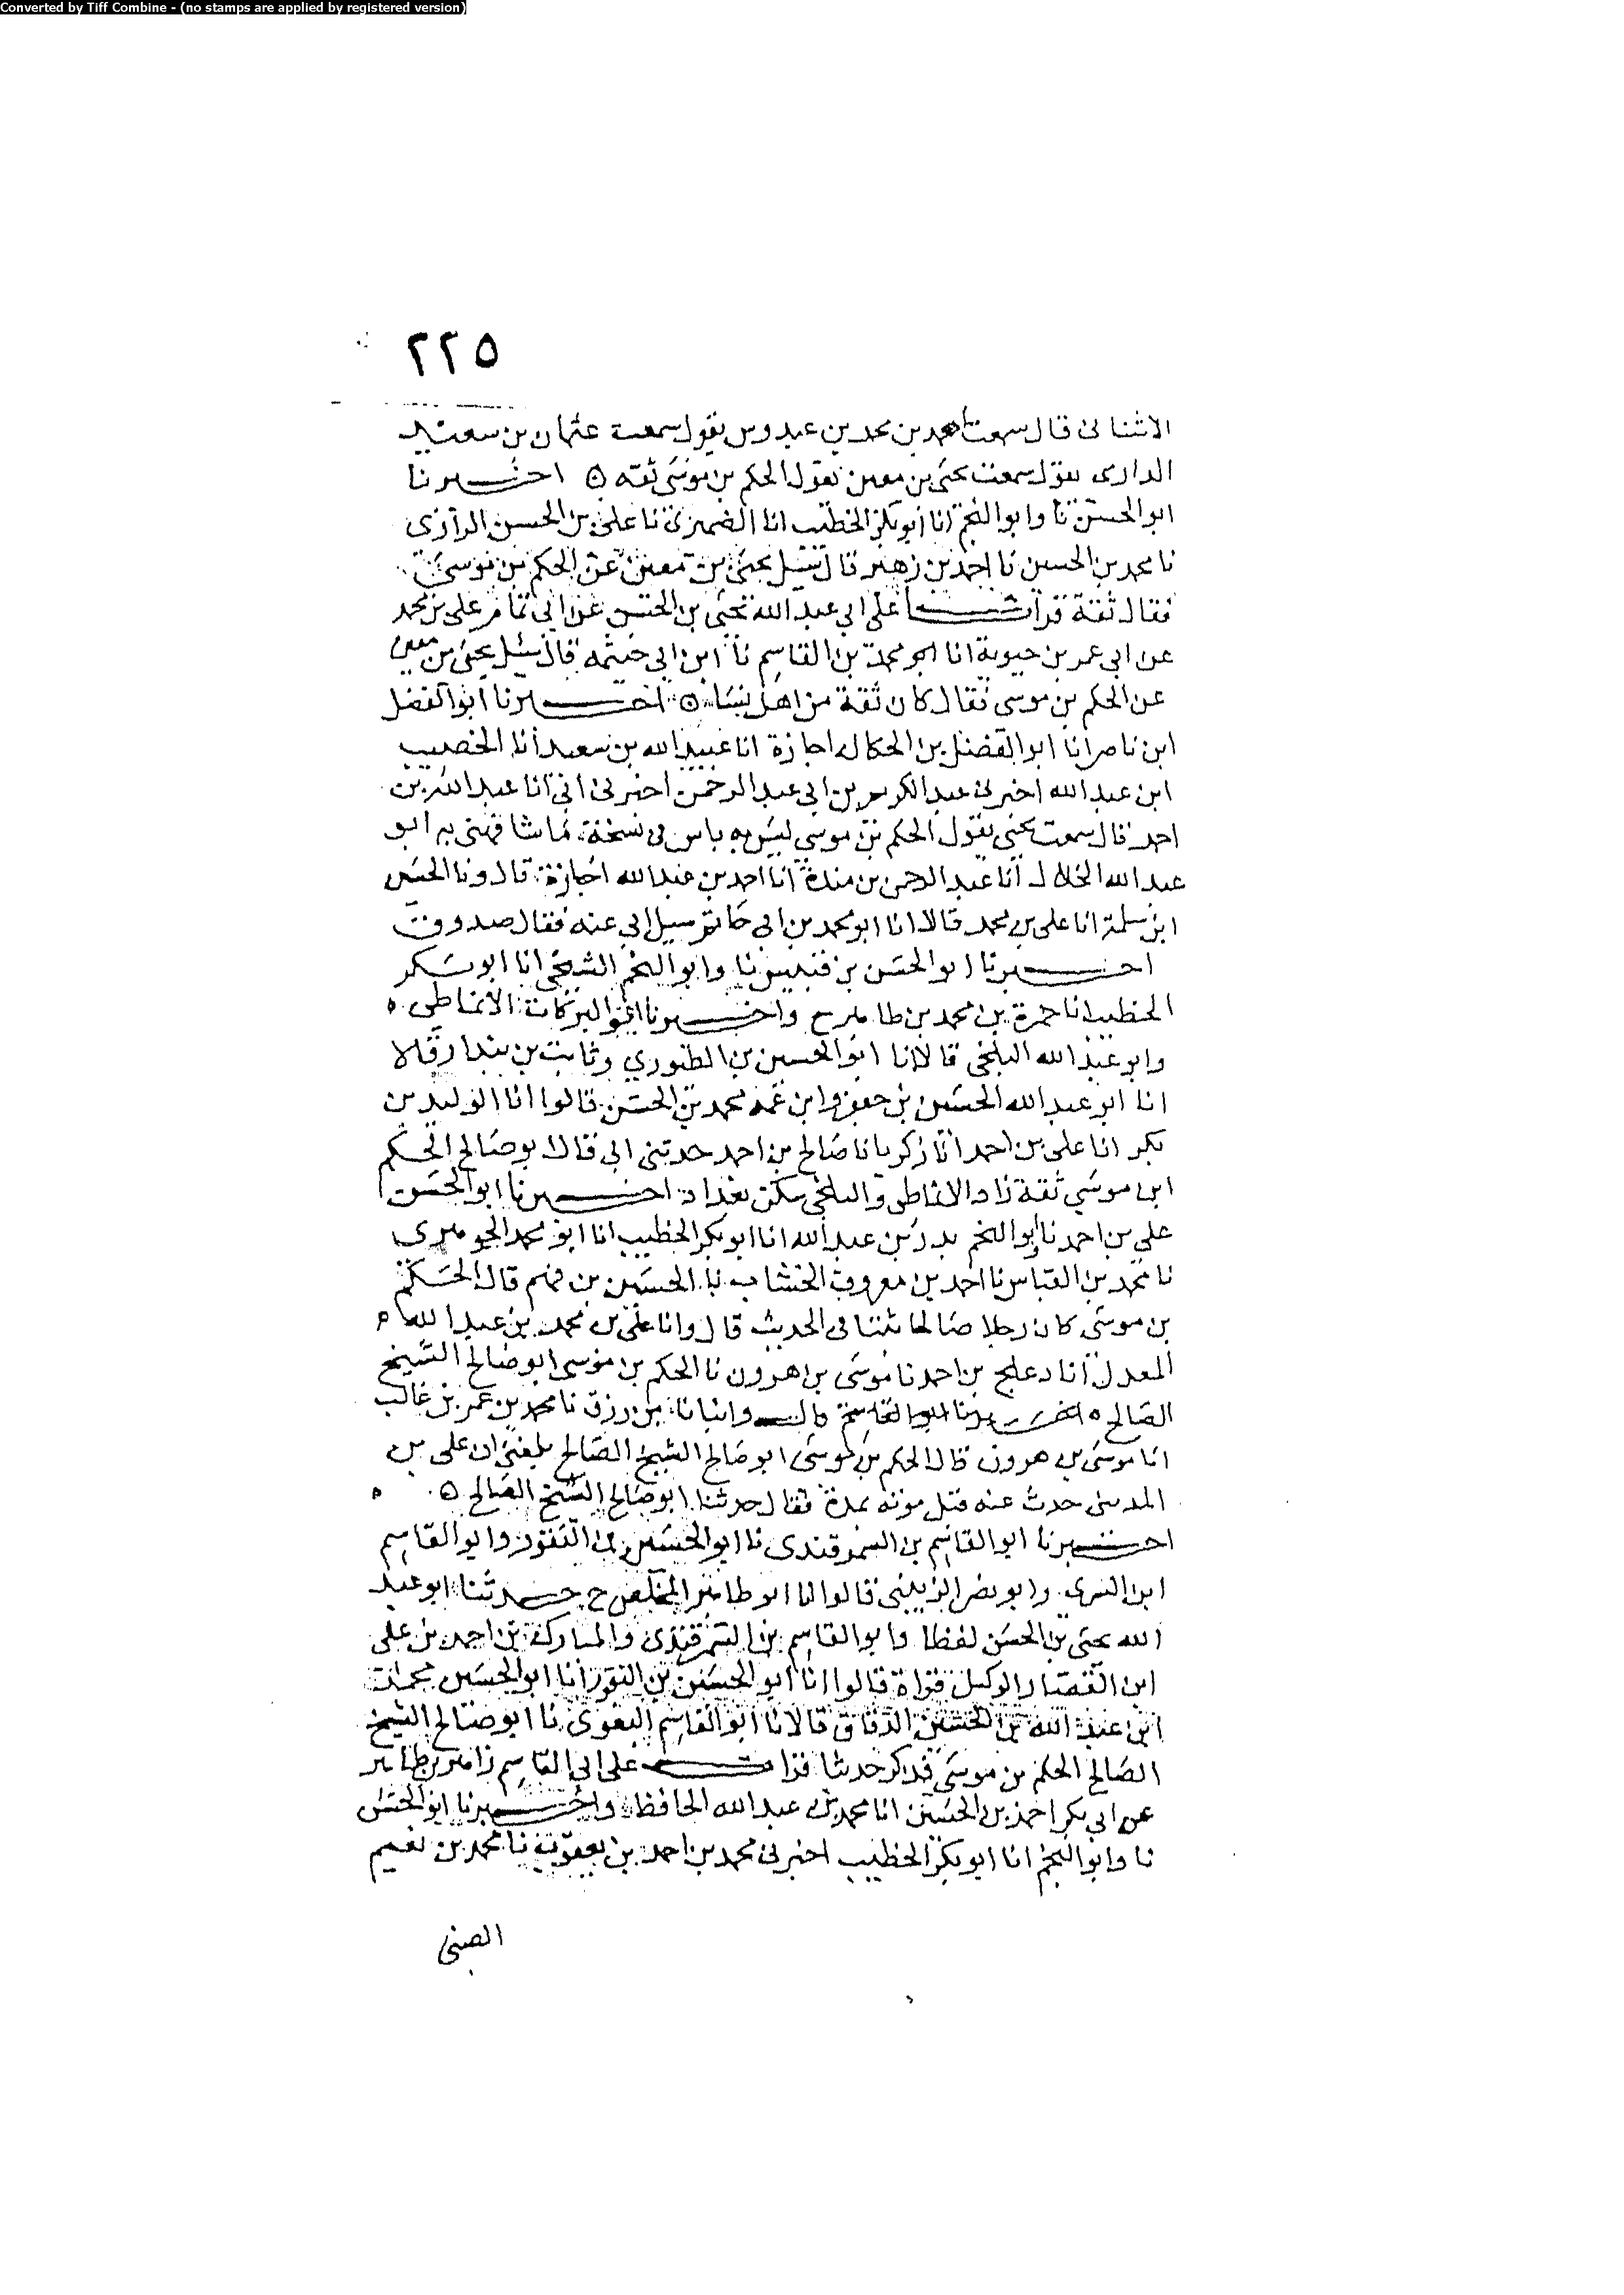 Converted by Tiff Combine - (no stamps are applied by registered version)
٢٢٥
الاشنانى قال سمعت احمد بن محمد بن عبدوس يقول سمعت عثمان بن سعيد
الدارى يقول سمعت يحيى بن معين يقول الحكم بن موسى ثقه ٥ اخبرنا
ابو الحسن نا وابو النجم انا ابو بكر الخطيب انا الضمرى نا على بن الحسن الرازى
نا محمد بن الحسين نا احمد بن زهير قال سئل يحيى بن معين عن الحكم بن موسى
فقال ثقة قرات على ابى عبد الله يحيى بن الحسن عن ابى تمام على بن محمد
عن ابى عمر بن حيوية انا محمد بن القاسم نا ابن ابى خيثمه قال سئل يحيى بن معين
عن الحكم بن موسى فقال كان ثقة من اهل نسا ٥ اخبرنا ابو الفضل
ابن ناصر انا ابو الفضل بن الحكاك اجازة انا عبيد الله بن سعيد انا الخصيب
ابن عبد الله اخبرنى عبد الكريم بن ابى عبد الرحمن اخبرنى ابى انا عبد الله بن
احمد قال سمعت يحيى يقول الحكم بن موسى ليس به باس فى نسخة ما شافهنى به ابو
عبد الله الخلال انا عبد الرحمن بن مندة انا احمد بن عبد الله اجازة قال ونا الحسين
ابن سلمة انا على بن محمد قالا انا ابو محمد بن ابى حاتم سيل ابى عنه فقال صدوق
اخبرنا ابو الحسن بن قبيس نا وابو النجم الشيحى انا ابو بكر
الخطيب انا حمزة بن محمد بن طاهر ح واخبرنا ابو البركات الانماطى ٥
وابو عبد الله البلخى قالا انا ابو الحسين بن الطيورى وثابت بن بندار قالا
انا ابو عبد الله الحسين بن جعفر وابن عمه محمد بن الحسن قالوا انا الوليد بن
بكر انا على بن احمد انا زكريا نا صالح بن احمد حدثنى ابى قال ابو صالح الحكم
ابن موسى ثقة زاد الانماطى والبلخى سكن بغداد اخبرنا ابو الحسن
على بن احمد نا ابو النجم بدر بن عبد الله انا ابو بكر الخطيب انا ابو محمد الجوهرى
نا محمد بن العباس نا احمد بن معروف الخشاب نا الحسين بن فهم قال الحكم
بن موسى كان رجلا صالحا ثبتا فى الحديث قال وانا على بن محمد بن عبد الله ٥
المعدل انا دعلج بن احمد نا موسى بن هرون نا الحكم بن موسى ابو صالح الشيخ
الصالح ٥ اخبرنا ابو القاسم وانبانا بن رزق نا محمد بن عمر بن غالب
انا موسى بن هرون قال الحكم بن موسى ابو صالح الشيخ الصالح بلغنى ان على بن
المدينى حدث عنه قبل موته بمدة فقال حدثنا ابو صالح الشيخ الصالح ٥
اخبرنا ابو القاسم بن السمرقندى نا ابو الحسين بن النقور وابو القاسم
ابن البسرى وابو نصر الزينبى قالوا انا ابو طاهر المخلص ح حدثنا ابو عبد
الله يحيى بن الحسن لفظا وابو القاسم بن السمرقندى والمبارك بن احمد بن على
ابن القصار الوكيل قراة قالوا انا ابو الحسين بن النقور انا ابو الحسين محمد
ابن عبد الله بن الحسين الدقاق قالا نا ابو القاسم البغوى نا ابو صالح الشيخ
الصالح الحكم بن موسى فذكر حديثا قرات على ابى القاسم زاهر بن طاهر
عن ابى بكر احمد بن الحسين انا محمد بن عبد الله الحافظ واخبرنا ابو الحسن
نا وابو النجم انا ابو بكر الخطيب اخبرنى محمد بن احمد بن يعقوب نا محمد بن نعيم
الضبى